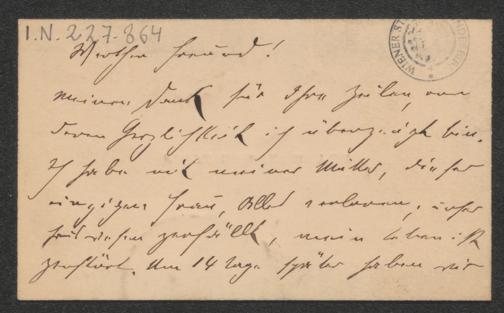 I.N. 227.864
WIENER ST
Werther Freund!
meinen Dank für Ihre Zeilen, von
deren Herzlichkeit ich überzeugt bin.
Ich habe mit meiner Mutter, dieser
einzigen Frau, Alles verloren, unser
Hauswesen zerfällt, mein Leben ist
zerstört. Um 14 Tage später haben wir